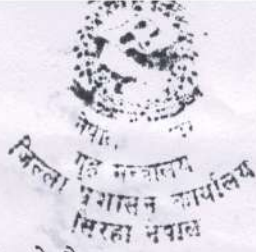 नेपाल
गृह मन्त्रालय
जिल्ला प्रशासन कार्यालय
सिरहा नेपाल